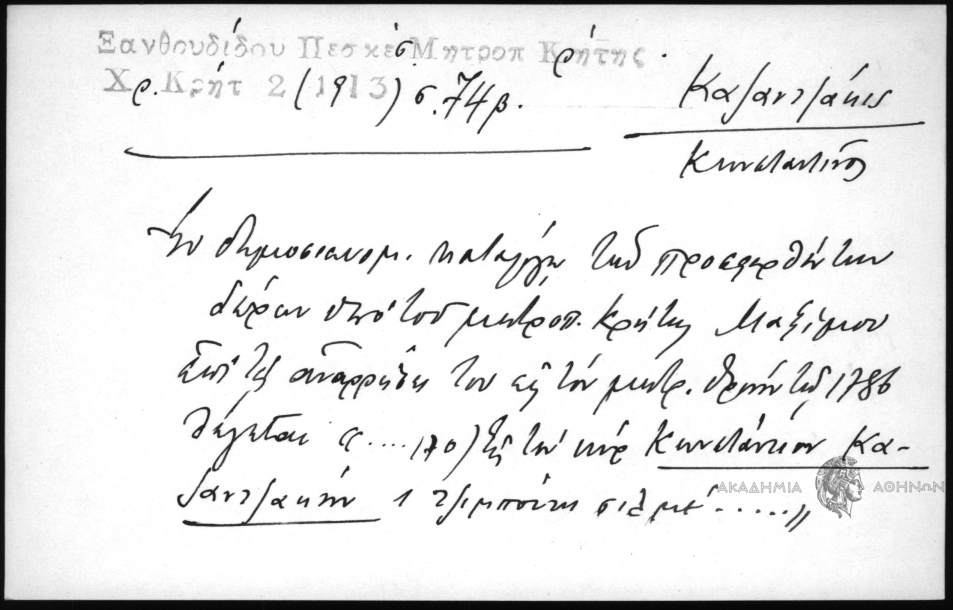 Ξανθουδίδου Πεσκέσ. Μητροπ Κρήτης.
Χρ. Κρήτ 2 (1913) σ. 74β.
Καζαντζάκης
Κωνσταντίνος
Ἐν δημοσιευομ. καταλόγῳ τῶν προσφερθέντων
δώρων ὑπὸ τοῦ μητροπ. Κρήτης Μαξίμου
ἐπὶ τῆς ἀναρρήσεως του εἰς τὸν μητρ. θρόνον τῷ 1786
λέγεται 170) εἰς τὸν κύρ Κωνστάντιον Κα-
ζαντζακήν 1 τζιμπούκι σιλμέ .....»
ΑΚΑΔΗΜΙΑ ΑΘΗΝΩΝ